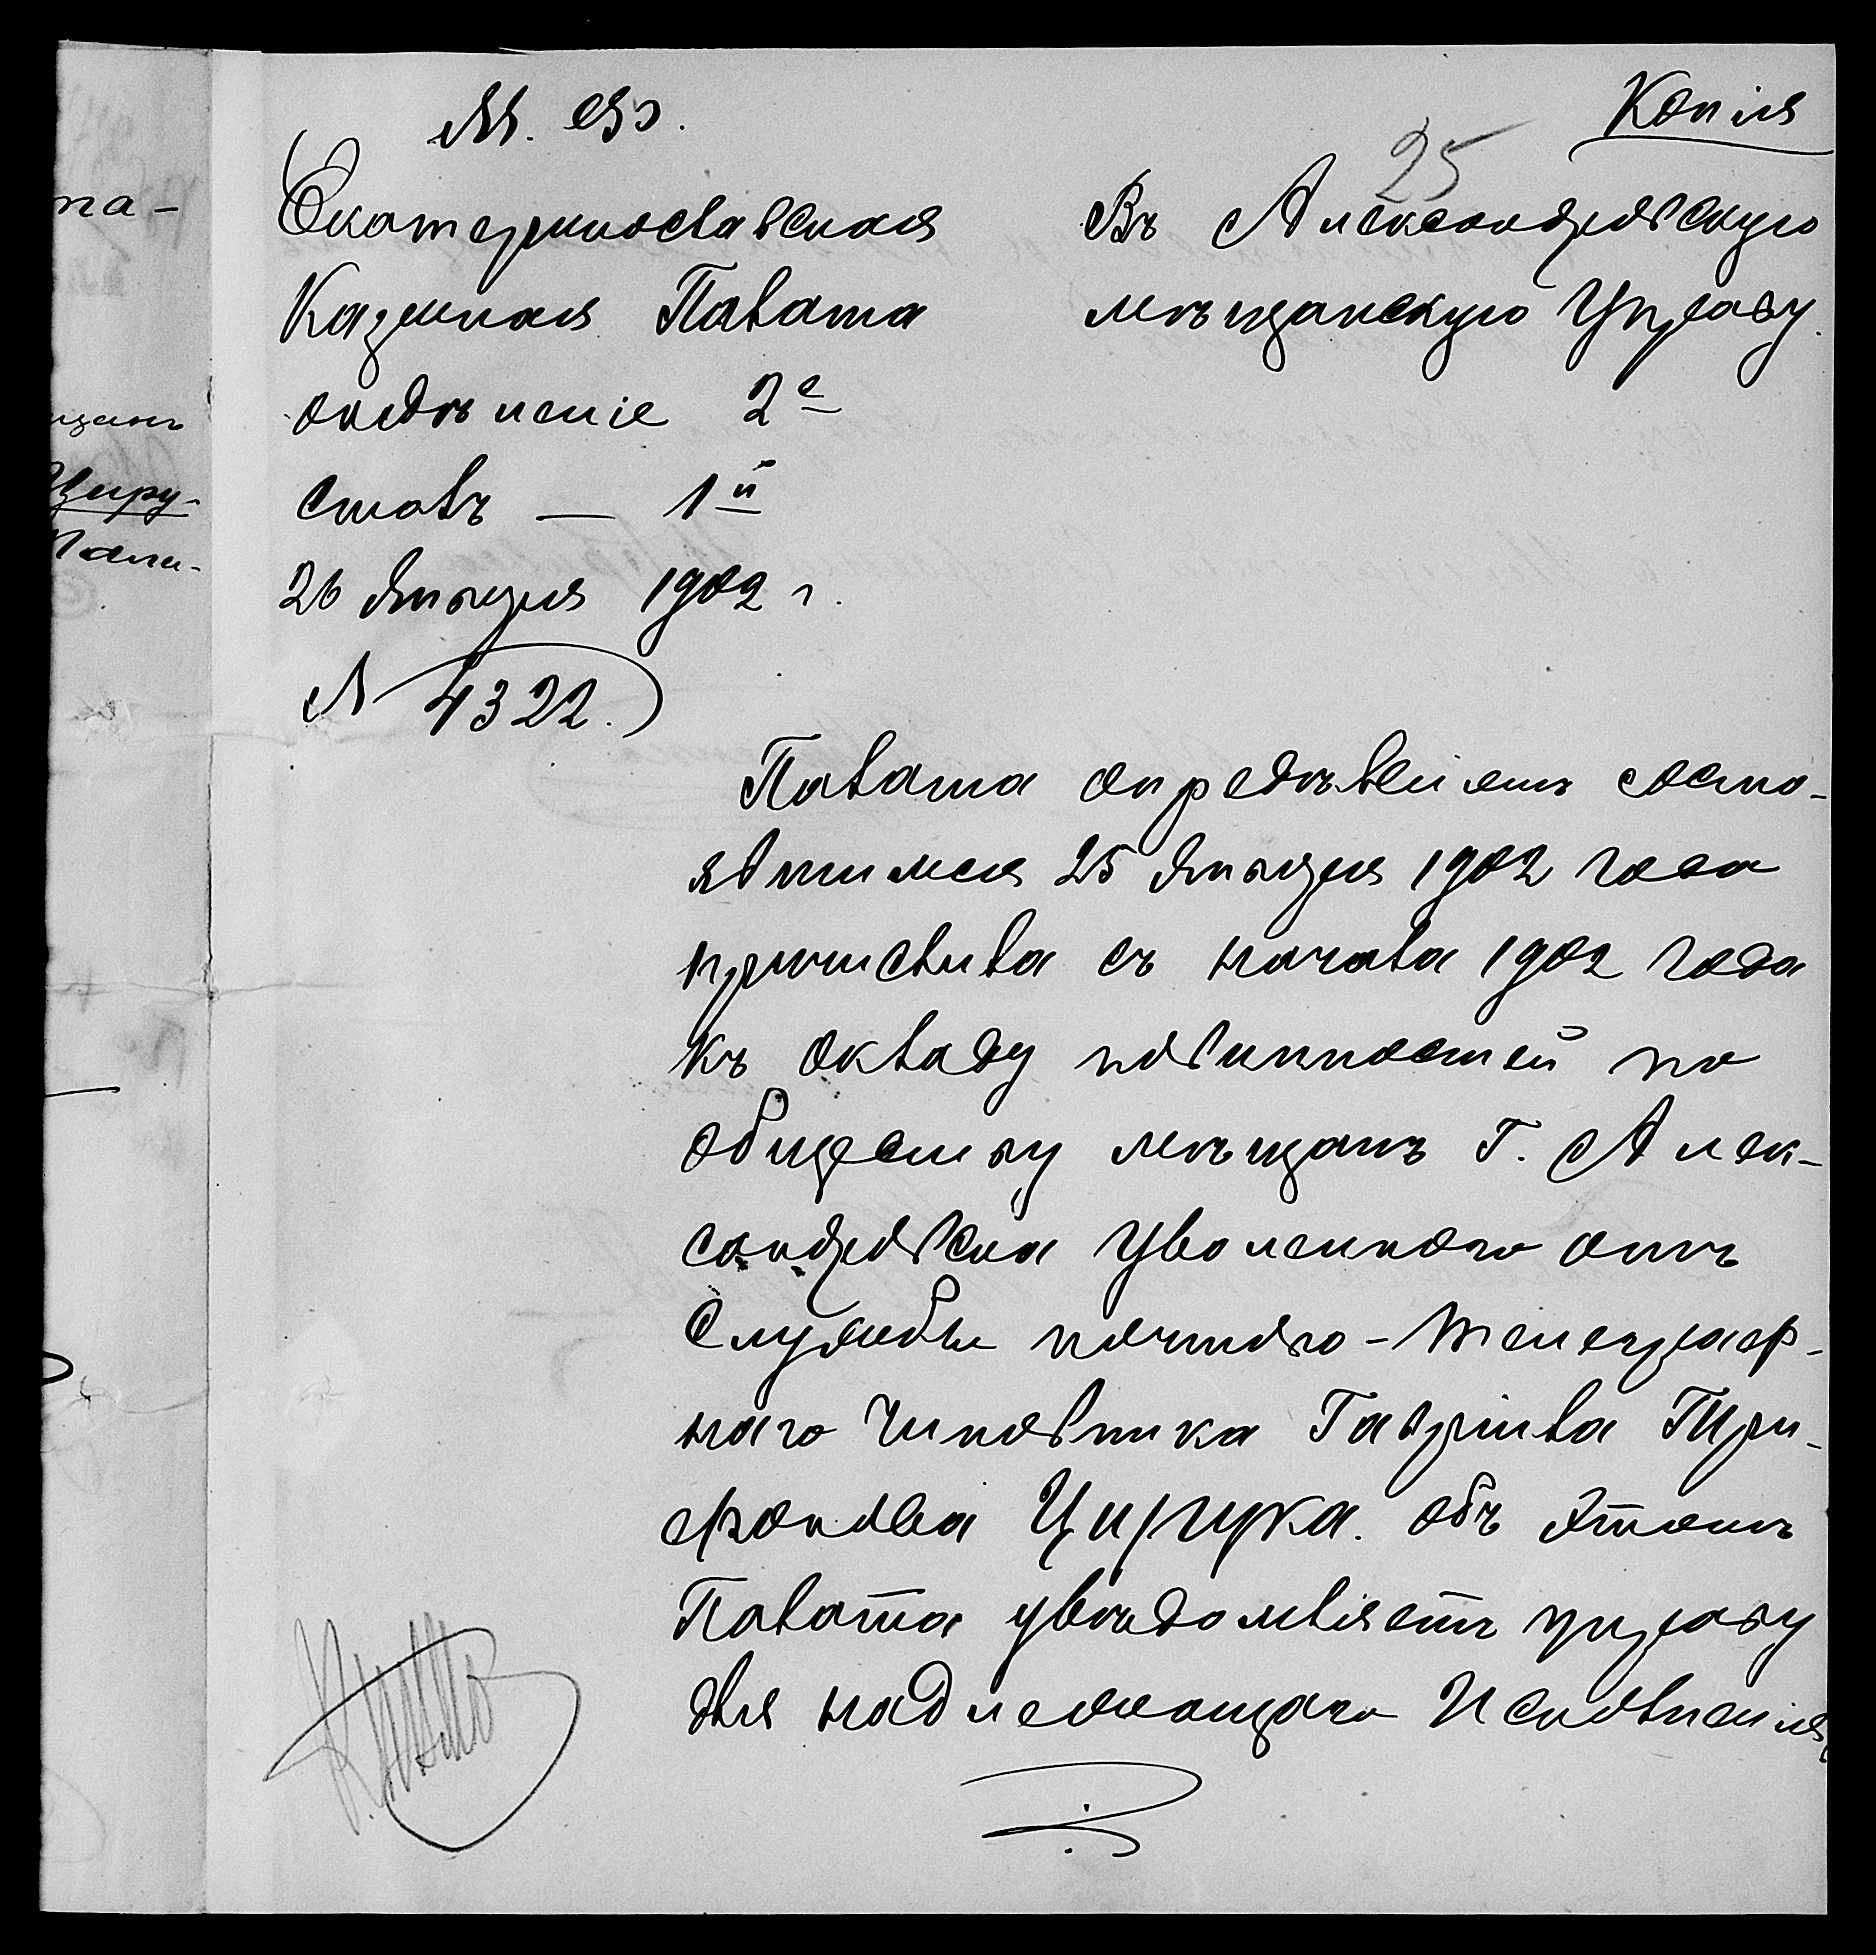 М. Ф.
Копія
25
Екатеринославская
Казенная Палата
отдѣленіе 2е
Столъ — 1й
26 Января 1902 г.
№ 4322.
Въ Александровскую
мѣщанскую Управу.
Палата опредѣленіемъ состо-
явшимся 25 Января 1902 года
причислила съ начала 1902 года
къ окладу повинностей по
обществу мѣщанъ г. Алек-
сандровска уволеннаго отъ
Службы почтово-телеграф-
наго Чиновника Гавріила Три-
фонова Цирука. Объ этомъ
Палата увѣдомляетъ управу
для надлежащаго Исполненія
та-
щанъ
Циру-
Пала-